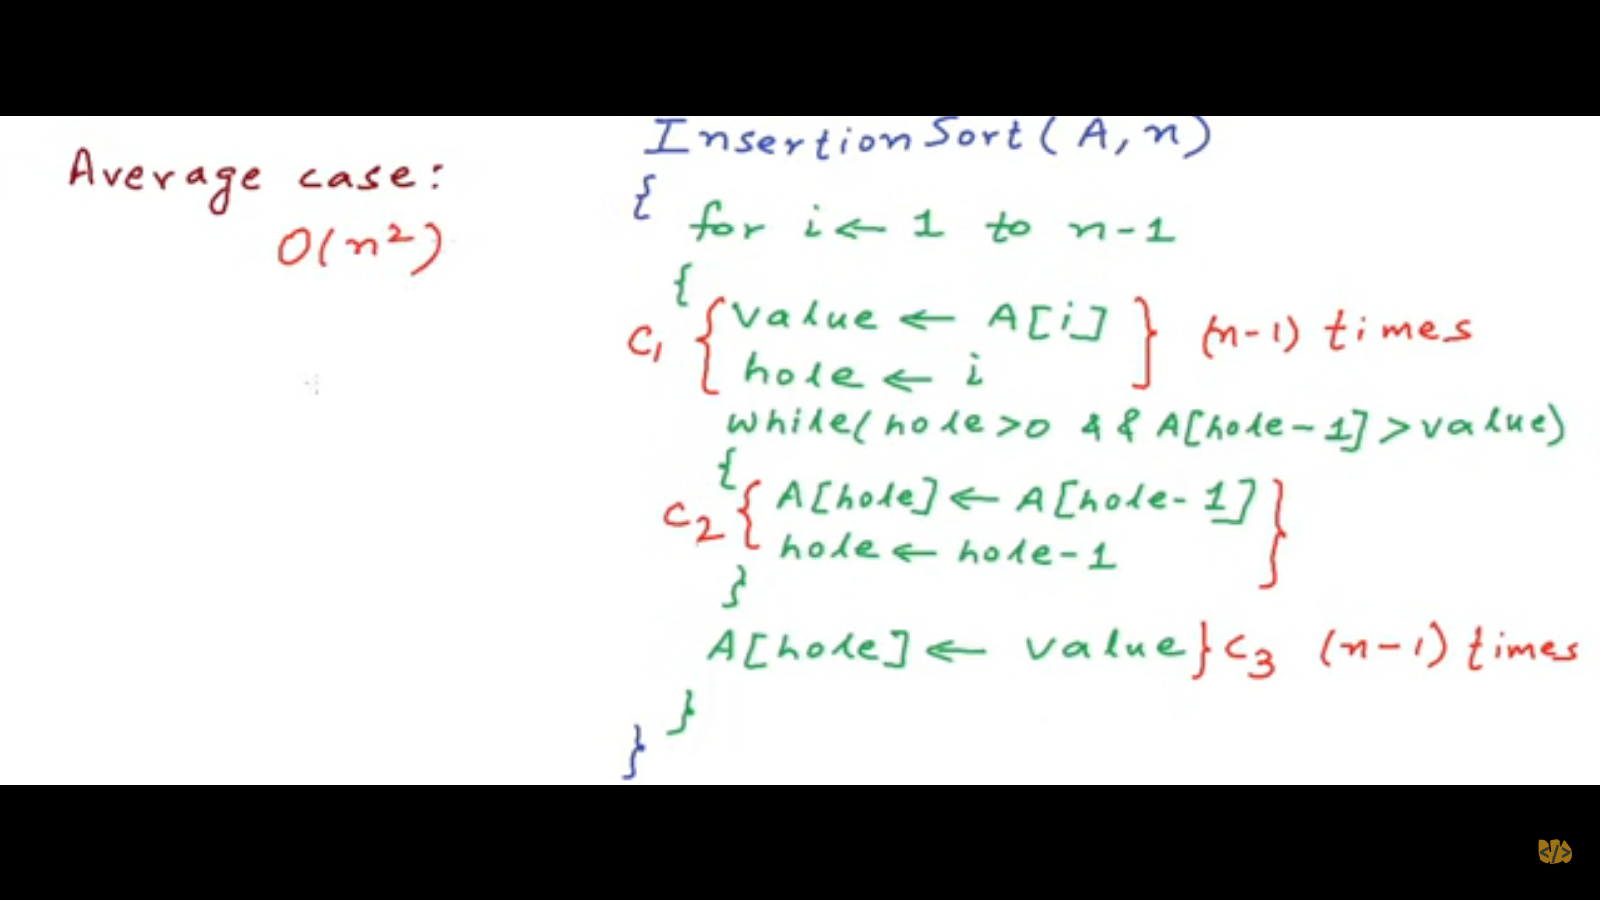 Average case:
O(n²)
InsertionSort(A,n)
{
for i ← 1 to n-1
{
C₁ { value ← A[i] } (n-1) times
hole ← i
while(hole>0 && A[hole-1]>value)
{
C₂ { A[hole] ← A[hole-1] }
hole ← hole-1
}
A[hole] ← value } C₃ (n-1) times
}
}